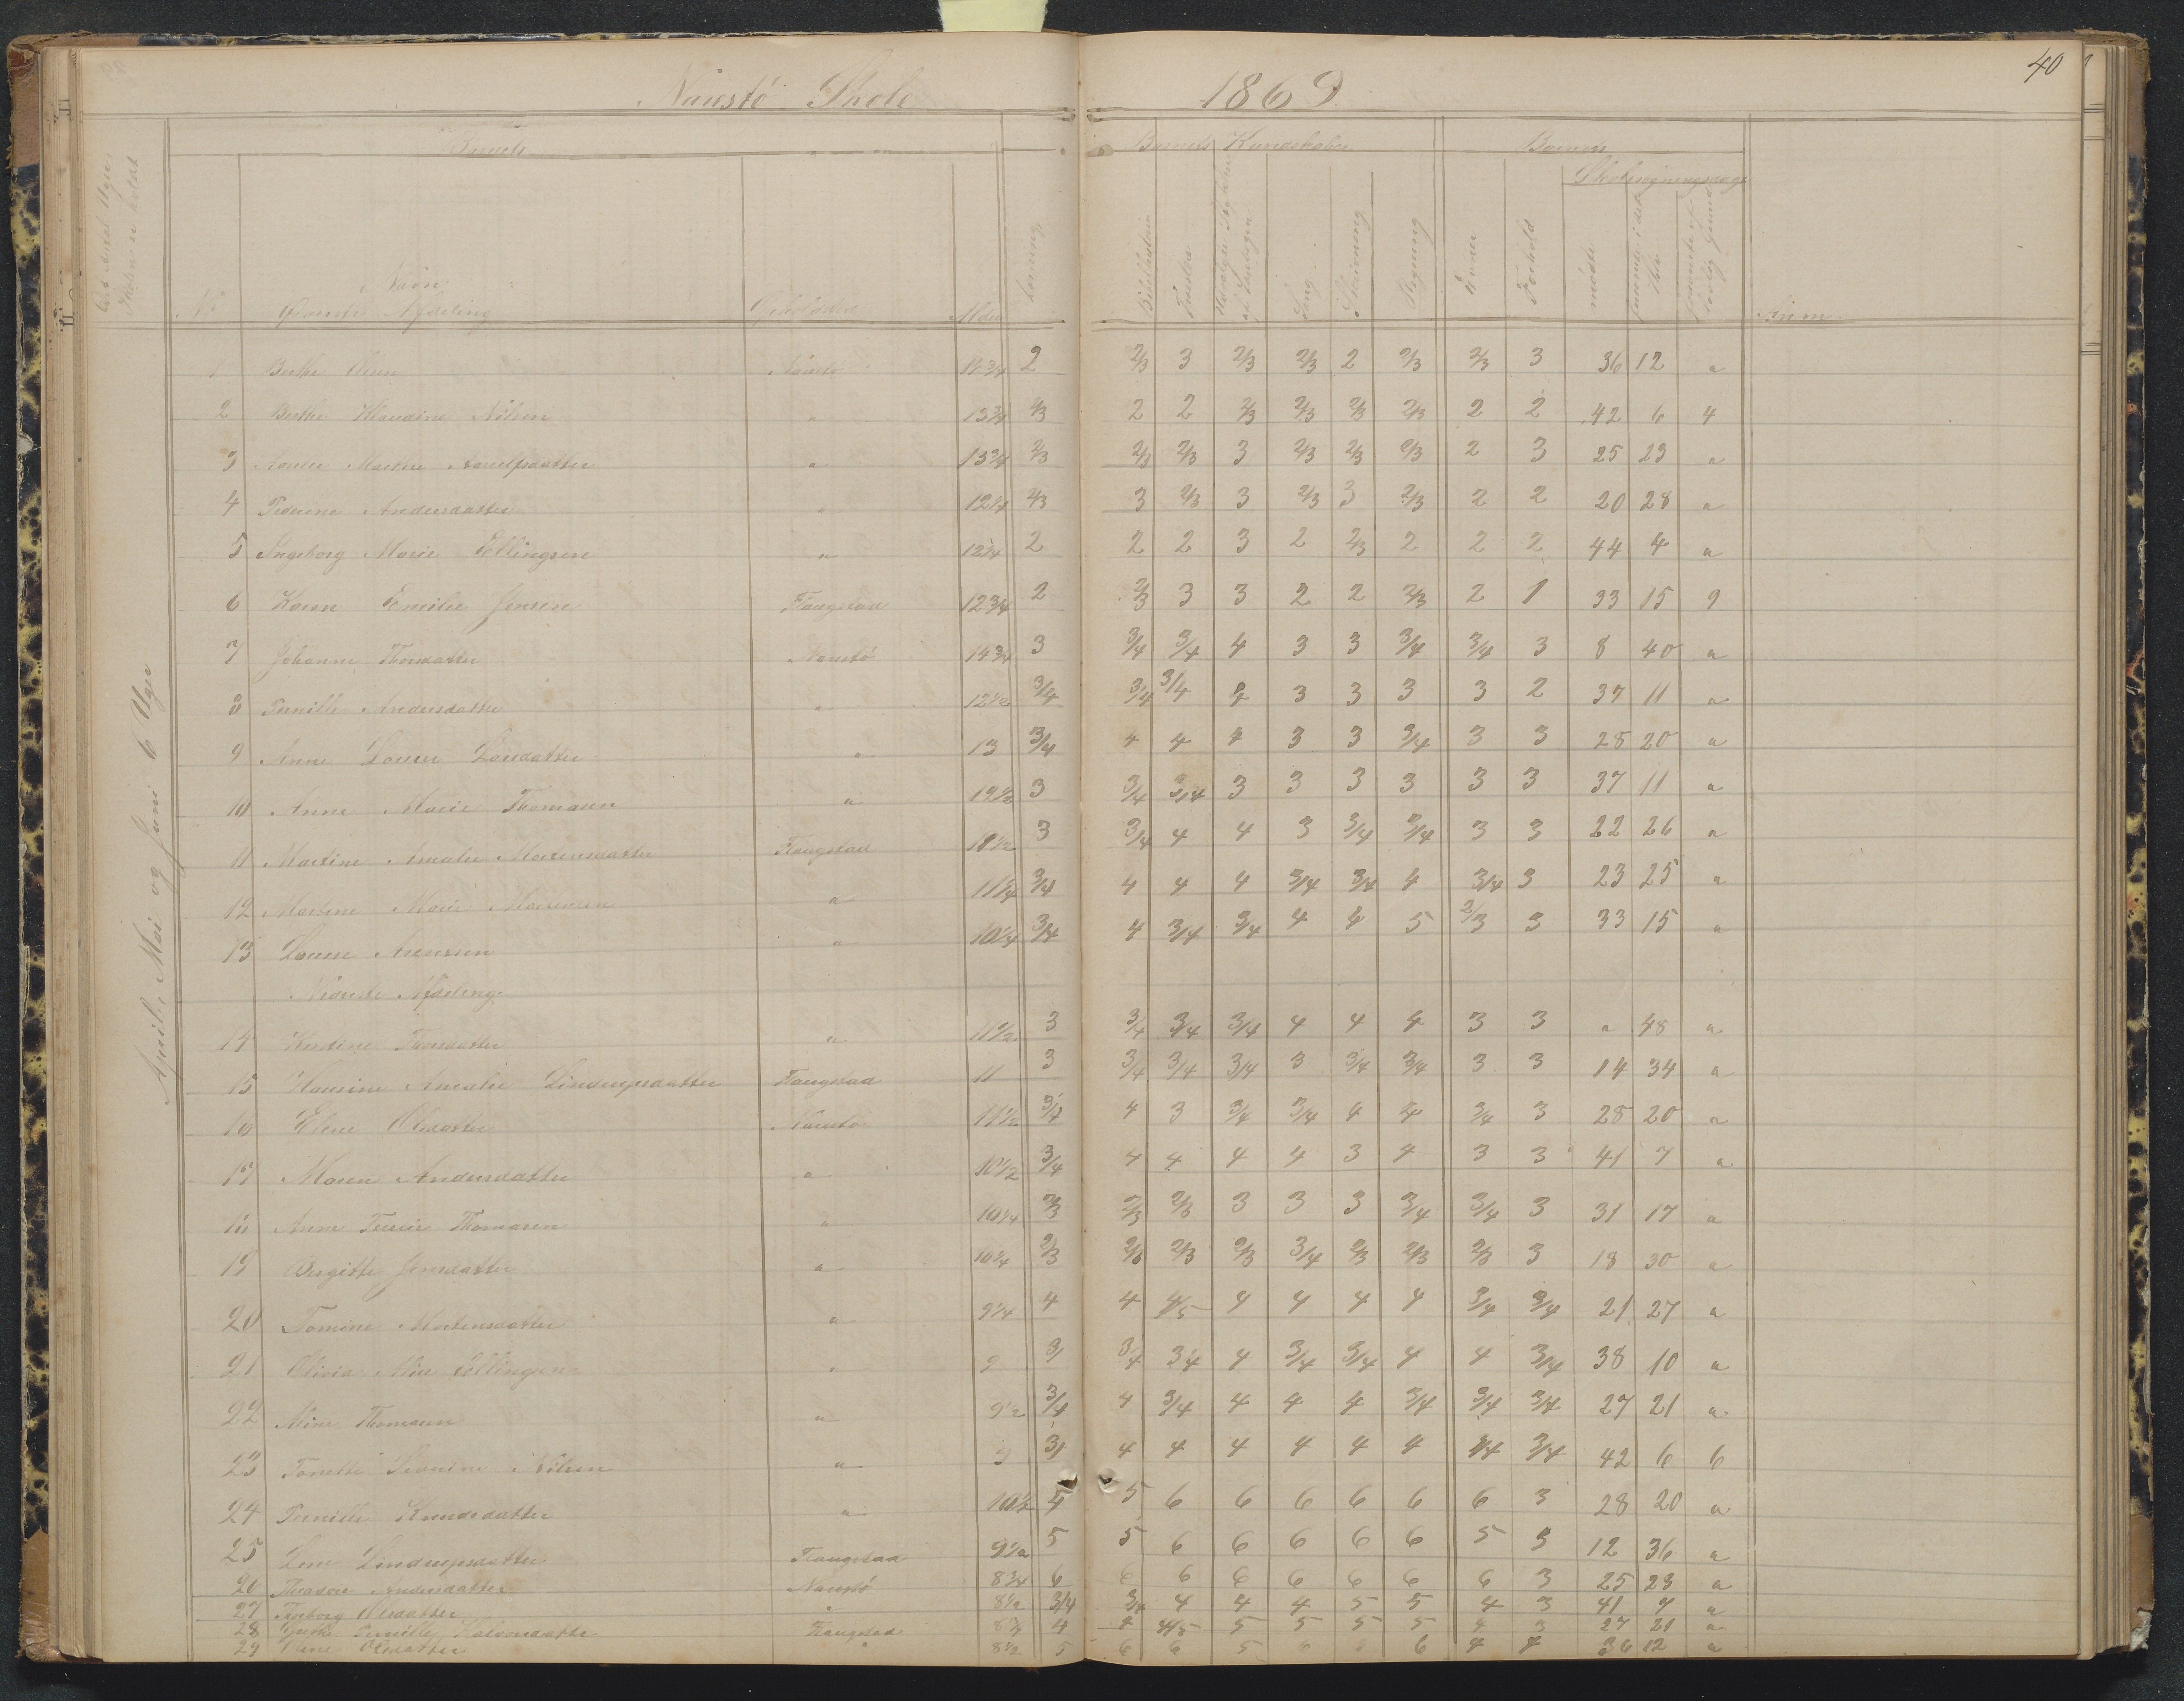 40
Narestö Skole 1869
Barnets
Barnets Kundskaber
Barnets
Skolesøgningsdage
Det Antal Uger Skolen er holdt
No
Navn
Øverste Afdeling
Opholdssted
Alder
Læsning
Bibelhistorie
Troeslære
Udvalgte Stykker af Læsebogen
Sang
Skrivning
Regning
Evner
Forhold
mødte
forsømte i det Hele
forsømte af lovlig Grund
Anm.
April, Mai og Juni 6 Uger
1 Berthe Olsen Narestö 14 3/4 2 2/3 3 2/3 2/3 2 2/3 2/3 3 36 12 "
2 Berthe Klaudine Nilsen " 13 3/4 2/3 2 2 2/3 2/3 2/3 2/3 2 2 42 6 4
3 Martine " 13 3/4 2/3 2/3 2/3 3 2/3 2/3 2/3 2 3 25 23 "
4 Pederine Andersdatter " 12 1/4 2/3 3 2/3 3 2/3 3 2/3 2 2 20 28 "
5 Ingeborg Marie Ellingsen " 12 1/4 2 2 2 3 2 2/3 2 2 2 44 4 "
6 Karen Emilie Jensen Flangstad 12 3/4 2 2/3 3 3 2 2 2/3 2 1 33 15 9
7 Johanne Thorsdatter Narestö 14 3/4 3 3/4 3/4 4 3 3 3/4 3/4 3 8 40 "
8 Pernille Andersdatter " 12 1/2 3/4 3/4 3/4 4 3 3 3 3 2 37 11 "
9 Anne Larsdatter " 13 3/4 4 4 4 3 3 3/4 3 3 28 20 "
10 Anne Marie Thomasen " 12 1/2 3 3/4 3/4 3 3 3 3 3 3 37 11 "
11 Martine Amalie Mortensdatter Flangstad 3 3/4 4 4 3 3/4 3/4 3 3 22 26 "
12 Martine Marie " 11 3/4 4 4 4 3/4 3/4 4 3/4 3 23 25 "
13 Arensen " 10 1/4 3/4 4 3/4 3/4 4 4 5 2/3 3 33 15 "
Nederste Afdeling
14 Kirstine Thorsdatter " 11 1/2 3 3/4 3/4 3/4 4 4 4 3 3 " 48 "
15 Amalie Lindrupsdatter Flangstad 11 3 3/4 3/4 3/4 3 3/4 3/4 3 3 14 34 "
16 Elene Olsdatter Narestö 11 1/2 3/4 4 3 3/4 3/4 4 4 3/4 3 28 20 "
17 Maren Andersdatter " 10 1/2 3/4 4 4 4 4 3 4 3 3 41 7 "
18 Anne Thomasen " 10 1/4 2/3 2/3 2/3 3 3 3 3/4 3/4 3 31 17 "
19 Birgitte Jensdatter " 10 1/4 2/3 2/3 2/3 2/3 3/4 2/3 2/3 2/3 3 18 30 "
20 Tomine Mortensdatter " 9 1/4 4 4 4/5 4 4 4 4 3/4 3/4 21 27 "
21 Olivia Mine Ellingsen " 9 3/ 3/4 3/4 4 3/4 3/4 4 4 3/4 38 10 "
22 Mine Thomasen " 9 1/2 3/4 4 3/4 4 4 4 3/4 3/4 3/4 27 21 "
23 Tonette Severine Nilsen " 9 3/ 4 4 4 4 4 4 4/4 3/4 42 6 6
24 Pernille Knudsdatter " 10 1/2 5 5 6 6 6 6 6 6 3 28 20 "
25 Lene Lindrupsdatter Flangstad 9 1/2 5 5 6 6 6 6 6 5 3 12 36 "
26 Theodore Andersdatter Narestö 8 3/4 6 6 6 6 6 6 6 6 3 25 23 "
27 Olsdatter " 8 1/2 3/4 3/4 4 4 4 5 5 4 3 41 7 "
28 Pernille Flangstad 8 3/4 4 4 4/5 5 5 5 5 4 3 27 21 "
29 Olsdatter " 8 1/2 5 6 6 5 6 4 4 36 12 "